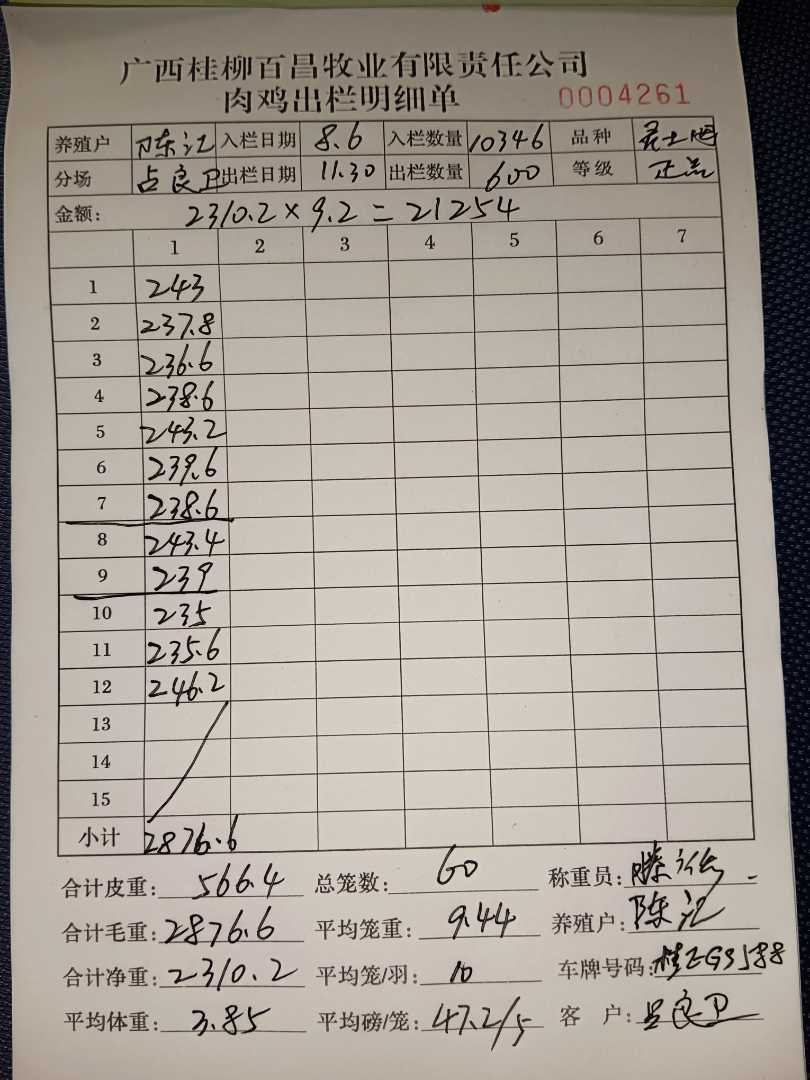 广西桂柳百昌牧业有限责任公司
肉鸡出栏明细单 0004261
养殖户 陈江 入栏日期 8.6 入栏数量 10346 品种
分场 占良卫 出栏日期 11.30 出栏数量 600 等级 正品
金额: 2310.2×9.2=21254
1 2 3 4 5 6 7
1 243
2 237.8
3 236.6
4 238.6
5 243.2
6 239.6
7 238.6
8 243.4
9 239
10 235
11 235.6
12 246.2
13
14
15
小计 2876.6
合计皮重: 566.4 总笼数: 60 称重员: 滕
合计毛重: 2876.6 平均笼重: 9.44 养殖户: 陈江
合计净重: 2310.2 平均笼/羽: 10 车牌号码:
平均体重: 3.85 平均磅/笼: 47.2/5 客 户: 占良卫